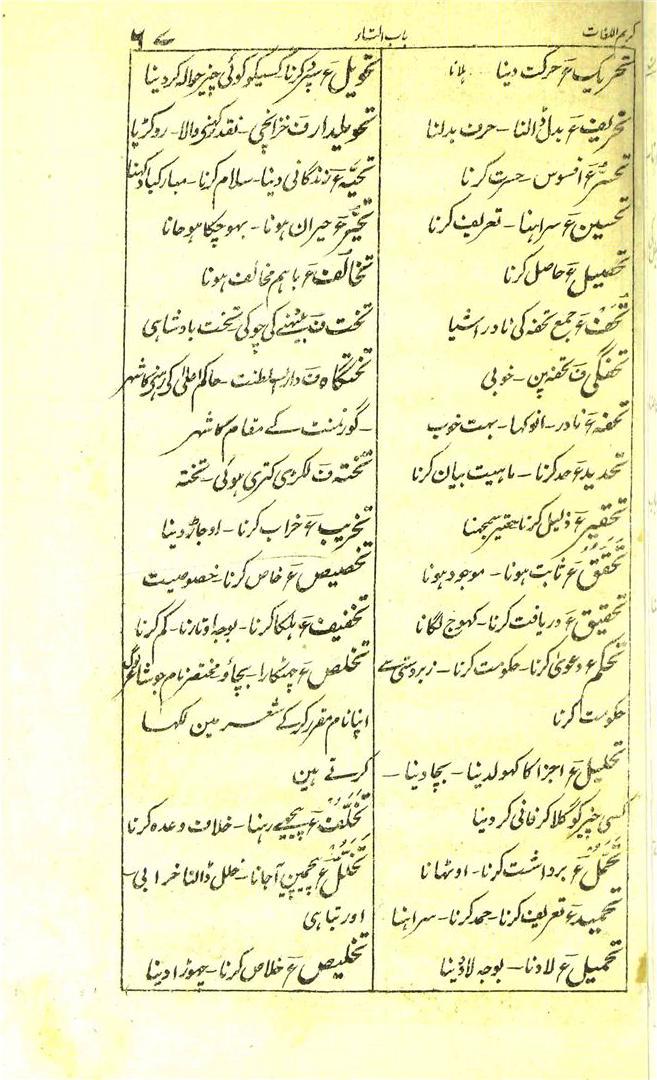 کریم اللغات
باب التاء
۶۷
تحریک ع حرکت دینا ہلانا
تحریف ع بدل ڈالنا - حرف بدلنا
تحسّر ع افسوس - حسرت کرنا
تحسین ع سراہنا - تعریف کرنا
تحصیل ع حاصل کرنا
تُحَف ع جمع تحفہ کی نادر اشیا
تحفگی ف تحفہ پن - خوبی
تحفہ ع نادر - انوکہا - بہت خوب
تحدید ع حد کرنا - ماہیت بیان کرنا
تحقیر ع ذلیل کرنا حقیر سمجہنا
تَحَقُّق ع ثابت ہونا - موجود ہونا
تحقیق ع دریافت کرنا - کہوج لگانا
تحکّم ع دعویٰ کرنا - حکومت کرنا - زبردستی سے
حکومت کرنا
تحلیل ع اجزا کا کہولدینا - بچا دینا -
کسی چیز کو گلا کر فانی کر دینا
تَحَمُّل ع برداشت کرنا - اوٹہانا
تحمید ع تعریف کرنا - حمد کرنا - سراہنا
تحمیل ع لادنا - بوجہ لادینا
تحویل ع سپرد کرنا کسیکو کوئی چیز حوالہ کر دینا
تحویلدار ف خزانچی - نقد رکہنے والا - روکڑیا
تحیّہ ع زندگانی دینا - سلام کرنا - مبارکباد کہنا
تحیُّر ع حیران ہونا - بہوچکا ہو جانا
تخالُف ع باہم مخالف ہونا
تخت ف بیٹہنے کی چوکی تخت بادشاہی
تختگاہ ف دار السلطنت - حاکم اعلیٰ کی رہنے کا شہر
- گورنمنٹ کے مقام کا شہر
تختہ ف لکڑی کتری ہوئی - تختہ
تخریب ع خراب کرنا - اوجاڑ دینا
تخصیص ع خاص کرنا - خصوصیت
تخفیف ع ہلکا کرنا - بوجہ اوتارنا - کم کرنا
تخلص ع چھٹکارا - بچاؤ مختصر نام جو شاعر لوگ
اپنا نام مقرر کر کے شعر مین لکہا
کرتے ہین
تَخَلُّف ع پیچہے رہنا - خلاف وعدہ کرنا
تَخَلُّل ع بیچمین آجانا - خلل ڈالنا خرابی -
اور تباہی
تخلیص ع خلاص کرنا - چہوڑا دینا